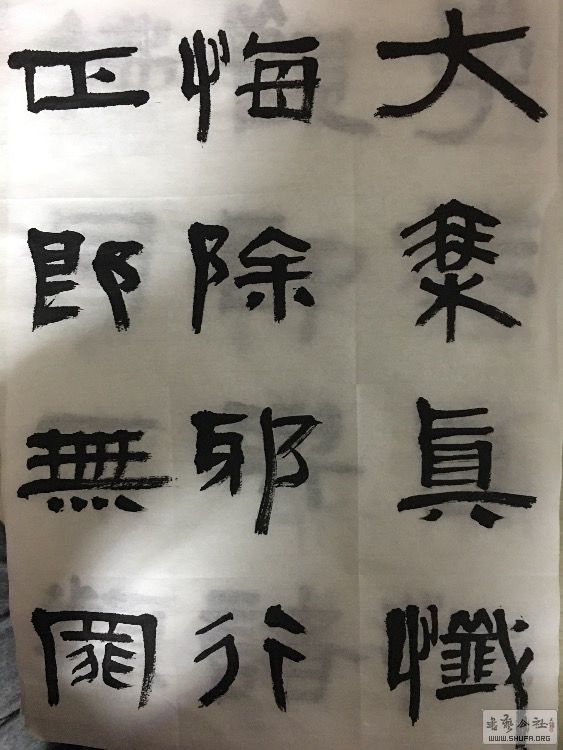 大乘眞懺
悔除邪行
正即無罪
书艺公社
WWW.SHUFA.ORG